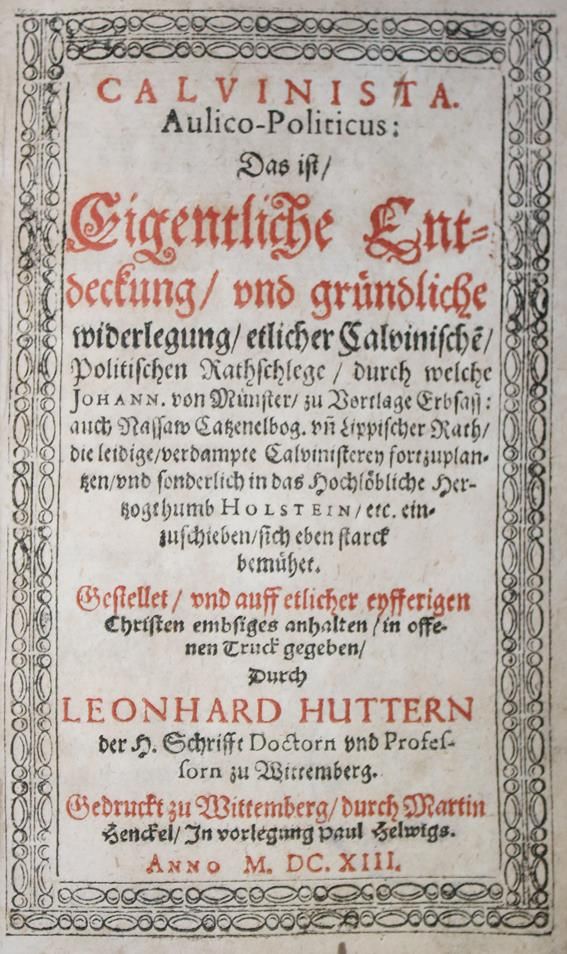 CALVINISTA.
Aulico-Politicus:
Das ist/
Eigentliche Ent-
deckung/ vnd gründliche
widerlegung/ etlicher Calvinischẽ/
Politischen Rathschlege / durch welche
JOHANN. von Münster/ zu Vortlage Erbsass:
auch Nassaw Catzenelbog. vñ Lippischer Rath/
die leidige/verdampte Calvinisterey fortzuplan-
tzen/vnd sonderlich in das Hochlöbliche Her-
tzogthumb HOLSTEIN/etc. ein-
zuschieben/sich eben starck
bemühet.
Gestellet/ vnd auff etlicher eyfferigen
Christen embsiges anhalten/in offe-
nen Truck gegeben/
Durch
LEONHARD HUTTERN
der H. Schrifft Doctorn vnd Profes-
sorn zu Wittemberg.
Gedruckt zu Wittemberg/durch Martin
Henckel/ In vorlegung paul Helwigs.
ANNO M. DC. XIII.